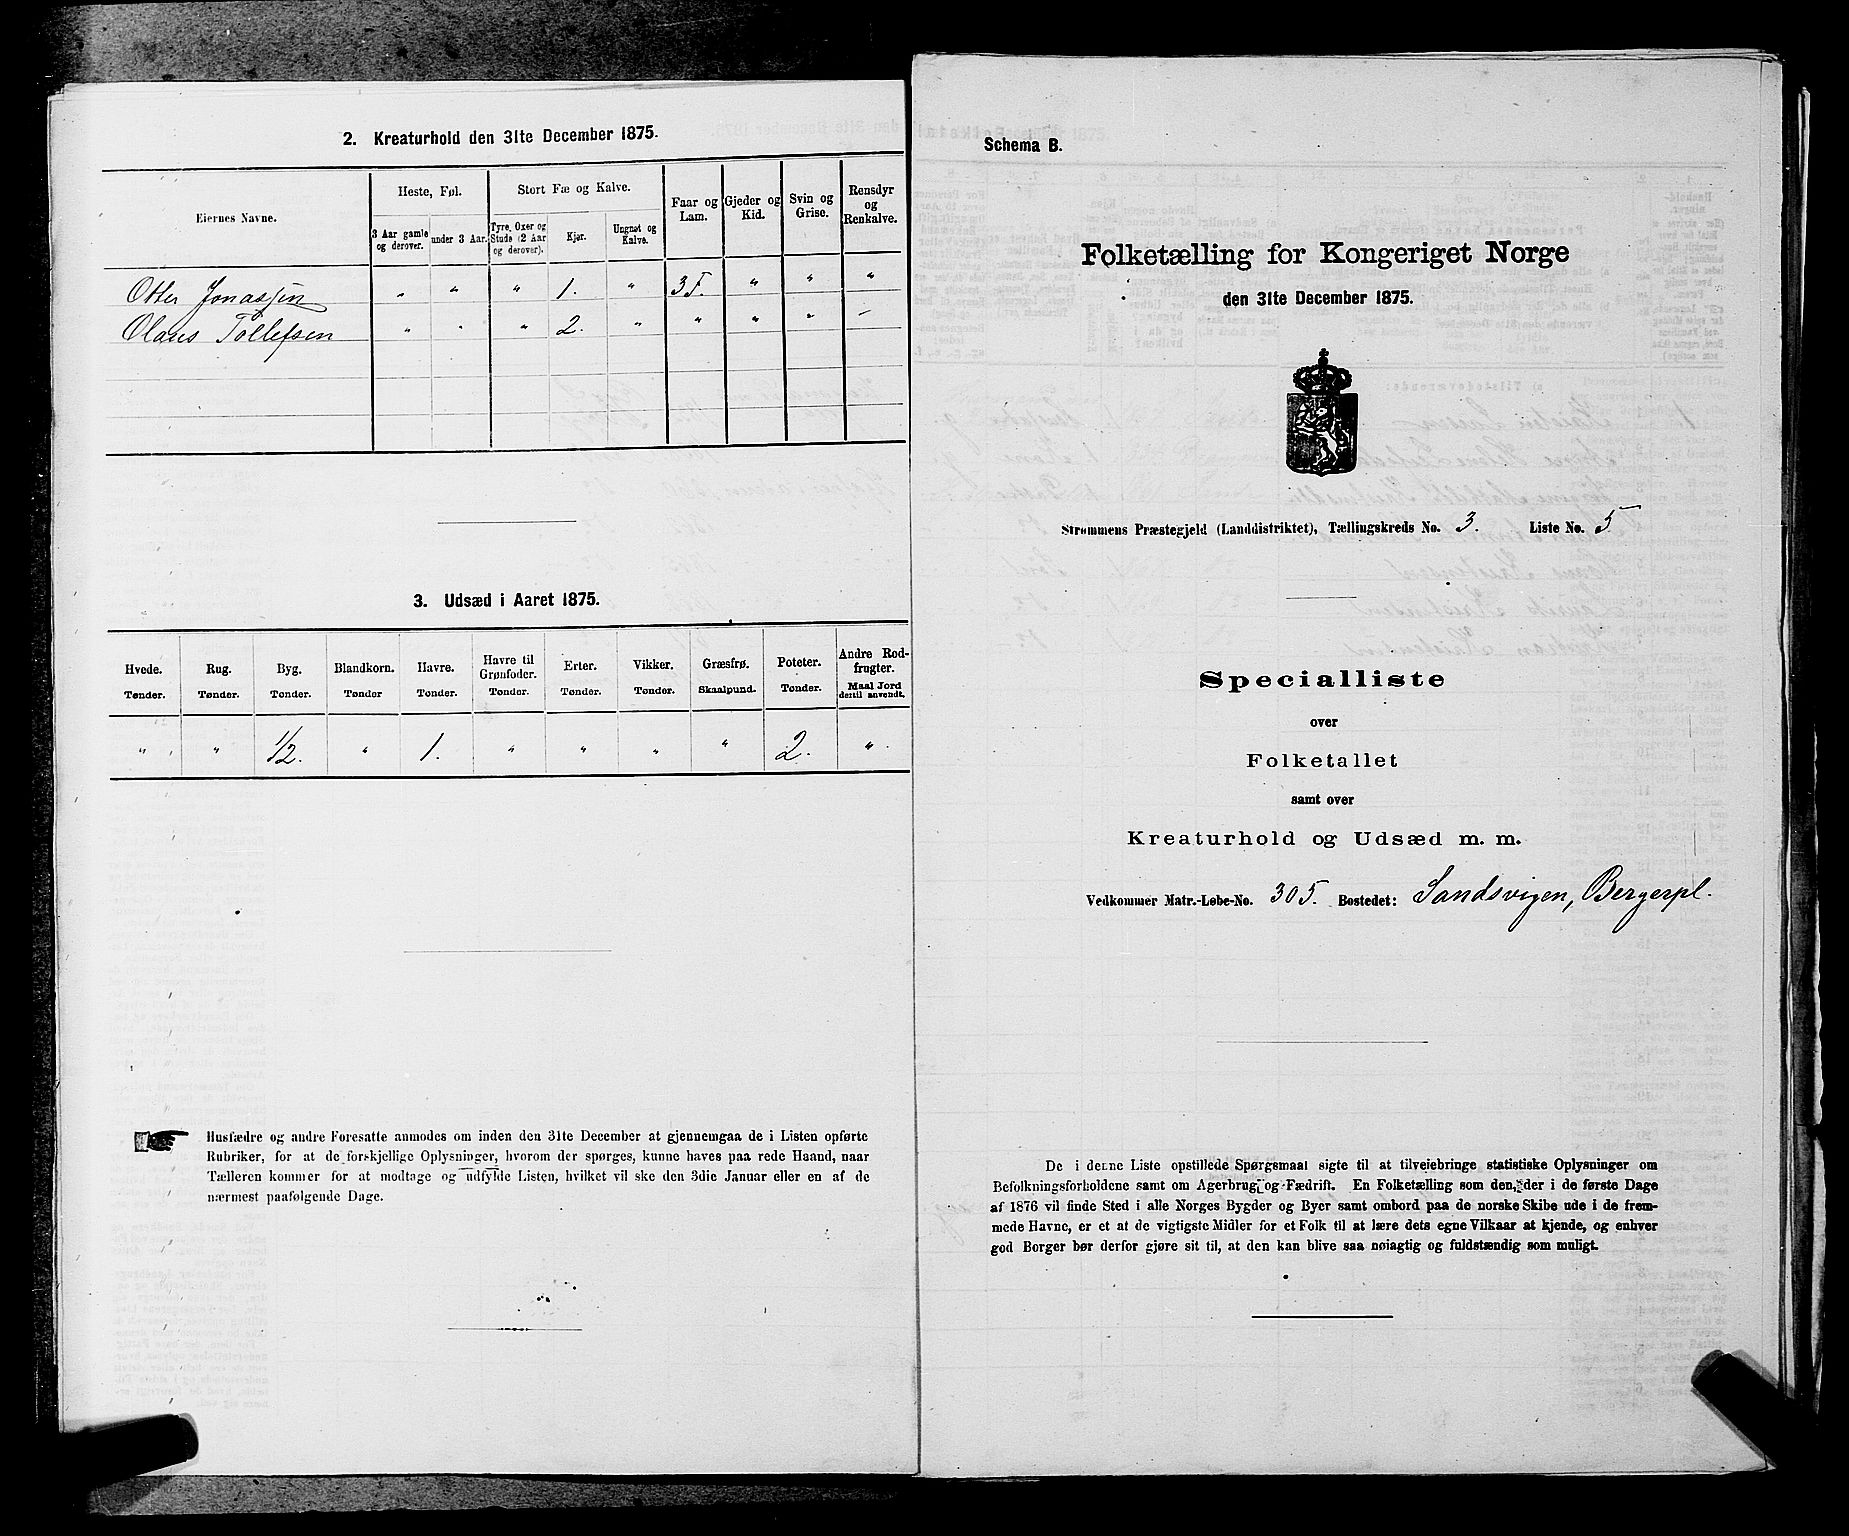 2. Kreaturhold den 31te December 1875.
Eiernes Navne.
Heste, Føl.
Stort Fæ og Kalve.
Faar og Lam.
Gjeder og Kid.
Svin og Grise.
Rensdyr og Renkalve.
3 Aar gamle og derover.
under 3 Aar.
Tyre, Oxer og Stude (2 Aar og derover).
Kjør.
Ungnøt og Kalve.
Otter Jonassen " " " 1. " 3 F. " " "
Olaus Tollefsen " " " 2. " " " " "
3. Udsæd i Aaret 1875.
Hvede. Rug. Byg. Blandkorn. Havre. Havre til Grønfoder. Erter. Vikker. Græsfrø. Poteter. Andre Rodfrugter.
Tønder. Tønder. Tønder. Tønder Tønder. Tønder. Tønder. Tønder. Skaalpund. Tønder. Maal Jord dertil anvendt.
" " 1/2. " 1. " " " " 2. "
Husfædre og andre Foresatte anmodes om inden den 31te December at gjennemgaa de i Listen opførte
Rubriker, for at de forskjellige Oplysninger, hvorom der spørges, kunne haves paa rede Haand, naar
Tælleren kommer for at modtage og udfylde Listen, hvilket vil ske den 3die Januar eller en af de
nærmest paafølgende Dage.
Schema B.
Folketælling for Kongeriget Norge
den 31te December 1875.
Strømmens Præstegjeld (Landdistriktet), Tællingskreds No. 3. Liste No. 5
Specialliste
over
Folketallet
samt over
Kreaturhold og Udsæd m. m.
Vedkommer Matr.-Løbe-No. 305. Bostedet: Sandsvigen, Bergerpl.
De i denne Liste opstillede Spørgsmaal sigte til at tilveiebringe statistiske Oplysninger om
Befolkningsforholdene samt om Agerbrug og Fædrift. En Folketælling som den, der i de første Dage
af 1876 vil finde Sted i alle Norges Bygder og Byer samt ombord paa de norske Skibe ude i de frem-
mede Havne, er et at de vigtigste Midler for et Folk til at lære dets egne Vilkaar at kjende, og enhver
god Borger bør derfor gjøre sit til, at den kan blive saa nøiagtig og fuldstændig som muligt.